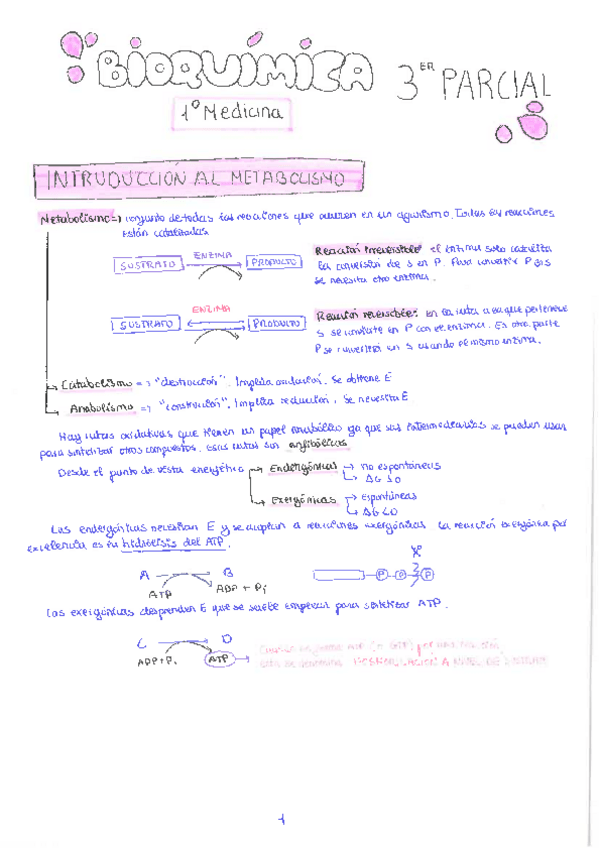 BIOQUÍMICA 3ER PARCIAL
1º Medicina
INTRUDUCCIÓN AL METABOLISMO
Metabolismo => conjunto de todas las reacciones que ocurren en un organismo. Todas las reacciones
están catalizadas
ENZIMA
SUSTRATO PRODUCTO
Reacción irreversible: el enzima solo cataliza
la conversión de S en P. Para convertir P en S
se necesita otro enzima.
ENZIMA
SUSTRATO PRODUCTO
Reacción reversible: en la ruta a la que pertenece
S se convierte en P con el enzima. En otra parte
P se convierte en S usando el mismo enzima.
Catabolismo => "destrucción". Implica oxidación. Se obtiene E
Anabolismo => "construcción". Implica reducción. Se necesita E
Hay rutas oxidativas que tienen un papel anabólico ya que sus intermediarios se pueden usar
para sintetizar otros compuestos. Esas rutas son anfibólicas
Desde el punto de vista energético Endergónicas no espontáneas
ΔG ≥ 0
Exergónicas Espontáneas
ΔG < 0
Las endergónicas necesitan E y se acoplan a reacciones exergónicas. La reacción exergónica por
excelencia es la hidrólisis del ATP.
A B
ATP ADP + Pi
P P P
Las exergónicas desprenden E que se suele emplear para sintetizar ATP.
C D
ADP+Pi ATP
1